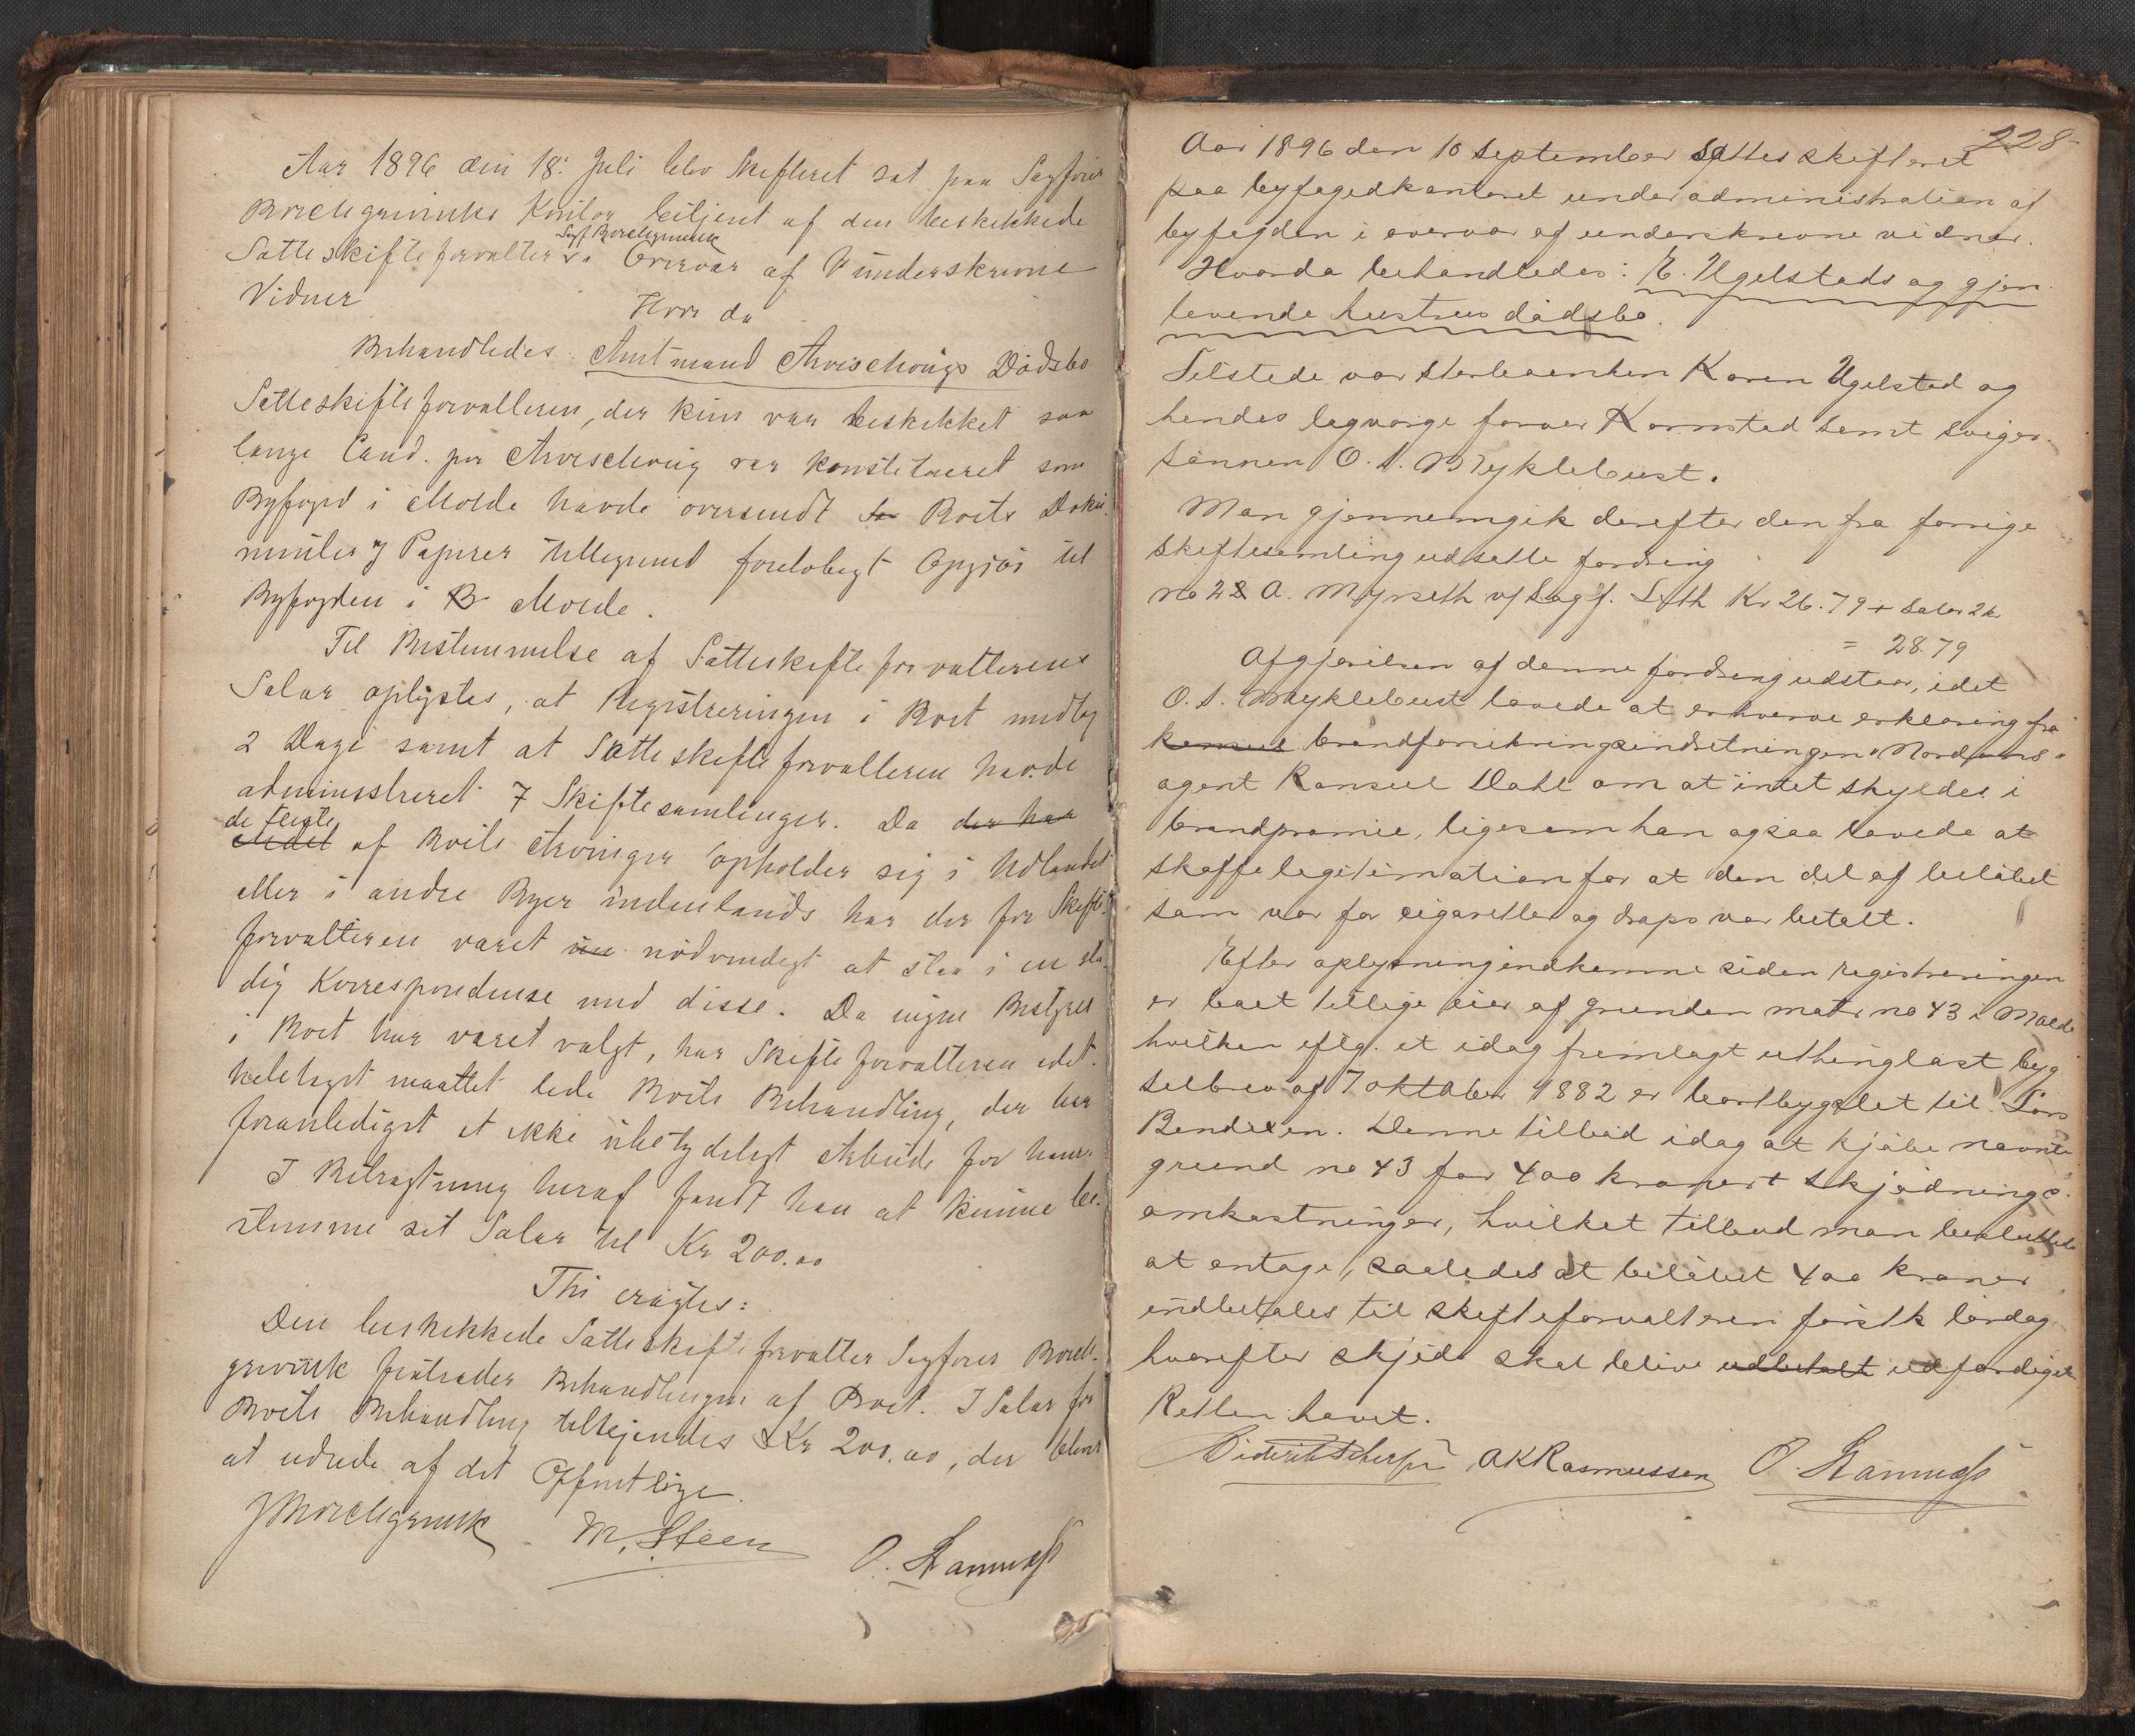 Aar 1896 den 18. Juli blev Skifteret sat paa Sagfører
Borchgrevinks Kontor betjent af den beskikkede
Sætteskifteforvalter Sagf. Borchgrevink i Overvær af Underskrevne
Vidner
Hvor da
Behandledes: Amtmand Arveschougs Dødsbo
Sætteskifteforvalteren, der kun var beskikket saa
længe Cand. jur Arveschoug var konstitueret som
Byfoged i Molde havde oversendt Boets Doku-
menter og Papirer tilligemed foreløbigt Opgjør til
Byfogden i B Molde.
Til Bestemmelse af Sætteskifteforvalterens
Salær oplystes, at Registreringen i Boet medtog
2 Dage samt at Sætteskifteforvalteren havde
administreret 7 Skiftesamlinger. Da der har
de fleste
af Boets Arvinger opholder sig i Udlandet
eller i andre Byer indenlands har der for Skifte-
forvalteren været nødvendigt at staa i en sta-
dig Korrespondense med disse. Da ingen Bestyrer
i Boet har været valgt, har Skifteforvalteren udel-
lukkende maattet lede Boets Behandling, der har
foranlediget et ikke ubetydeligt Arbeide for ham.
I Betragtning heraf fandt han at kunne be-
stemme sit Salær til Kr 200.00
Thi eragtes:
Den beskikkede Sætteskifteforvalter Sagfører Borch-
grevink fratræder Behandlingen af Boet. I Salær for
Boets Behandling tilkjendes Kr 200.00, der bliver
at udrede af det Offentlige.
J Borchgrevink M. Steen O. Ramndf
228
Aar 1896 den 10 September sattes skifteret
paa byfogedkontoret under administration af
byfogden i overvær af underskrevne vidner.
Hvorda behandledes: E. Ugelstads og gjen-
levende hustrus dødsbo.
Tilstede var sterboenken Karen Ugelstad og
hendes lagværge farver Kornstad samt sviger-
sønnen O. A. Myklebust.
Man gjennemgik derefter den fra forrige
skiftesamling udsatte fordring
no 22 A. Myrseth v/ Sagf. Leth Kr 26.79 + Salær 2 kr
= 28.79
Afgjørelsen af denne fordring udstaar, idet
O. A. Myklebust lovede at erhverve erklæring fra
konsul brandforsikringsindretningen "Nordens"
agent Konsul Dahl om at intet skyldes i
brandpræmie, ligesom han ogsaa lovede at
skaffe legitimation for at den del af beløbet
som var for cigaretter og drops var betalt.
Efter oplysning indkomne siden registreringen
er boet tillige eier af grunden matr no 43 i Molde
hvilken iflg. et idag fremlagt uthinglæst byg-
selbrev af 7 oktober 1882 er bortbygslet til Lars
Bendixen. Denne tilbød idag at kjøbe nævnte
grund no 43 for 400 kroner + skjødnings-
omkostninger, hvilket tilbud man besluttede
at antage, saaledes at beløbet 400 kroner
indbetales til skifteforvalteren førstk lørdag
hvorefter skjøde skal blive udbetalt udfærdiget.
Retten hævet.
AKRasmussen O. Ramndf